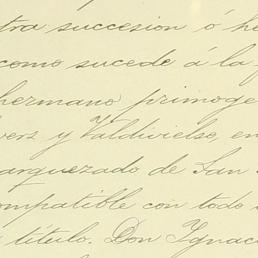 tra succesion ó he
como sucede á la f
hermano primoge
vers y Valdivielse, en
arquezado de San
ompatible con todo
título. Don Ignac